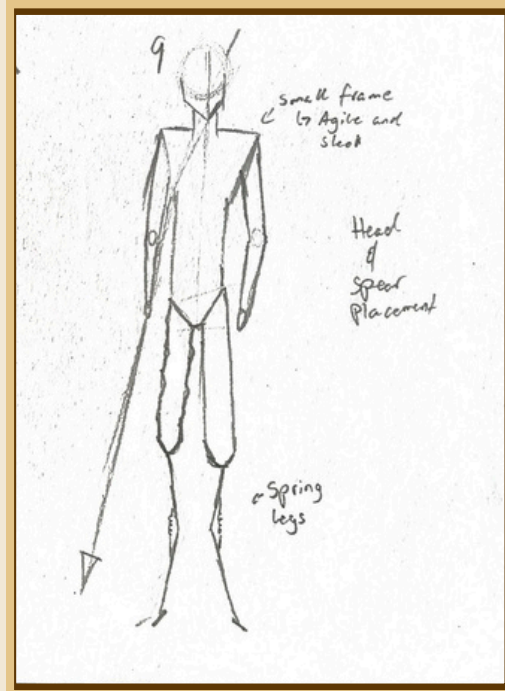 9
small frame
↳ Agile and
sleek
Head
&
spear
placement
Spring
legs